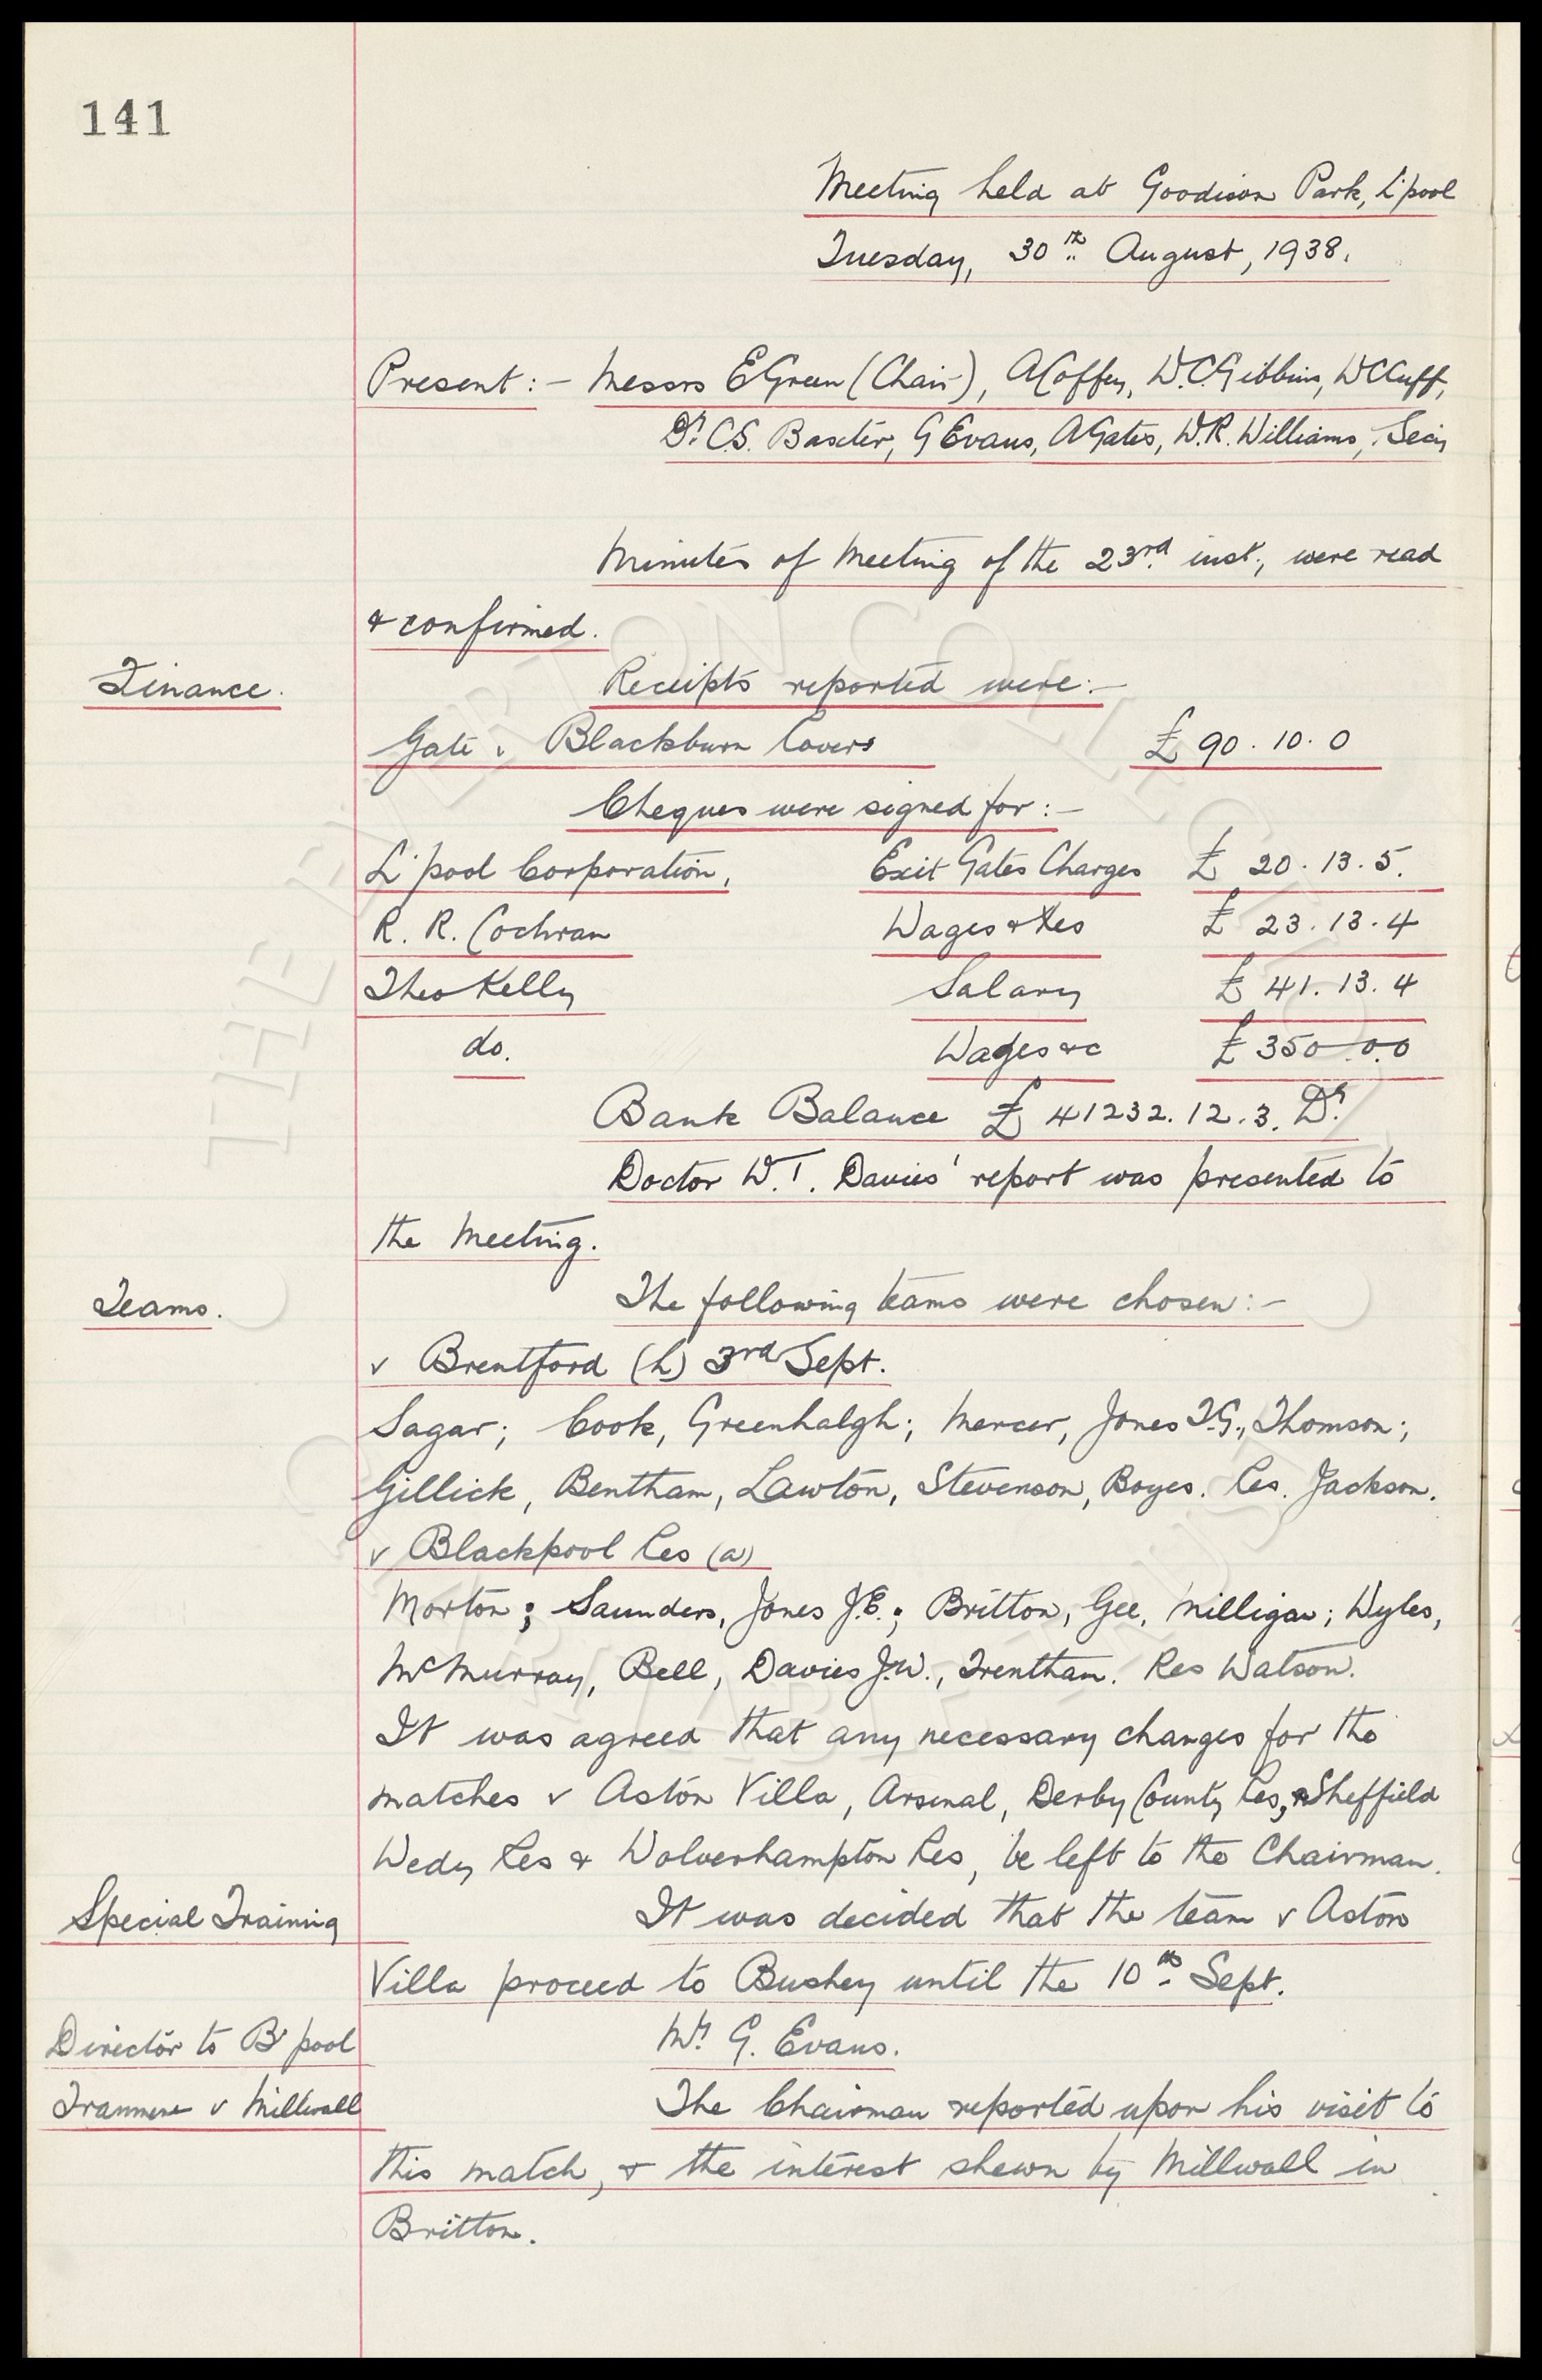 141
Meeting held at Goodison Park, L'pool
Tuesday, 30th August, 1938.
Present :- Messrs E Green (Chair), A Coffey, W.C. Gibbins, W C Cuff,
Dr. C.S. Baxter, G Evans, A Gates, W.R. Williams, Secy
Minutes of Meeting of the 23rd inst., were read
& confirmed.
Finance.
Receipts reported were :-
Gate v Blackburn Rovers £ 90. 10. 0
Cheques were signed for :-
L'pool Corporation, Exit Gates Charges £ 20. 13. 5.
R. R. Cochran Wages & Res £ 23. 13. 4
Theo Kelly Salary £ 41. 13. 4
do. Wages &c £ 350. 0. 0
Bank Balance £ 41232. 12. 3. Dr.
Doctor W. T. Davies' report was presented to
the Meeting.
Teams.
The following teams were chosen :-
v Brentford (h) 3rd Sept.
Sagar; Cook, Greenhalgh; Mercer, Jones T.G., Thomson;
Gillick, Bentham, Lawton, Stevenson, Boyes. Res. Jackson.
v Blackpool Res (a)
Morton; Saunders, Jones J.E.; Britton, Gee, Milligan; Wyles,
McMurray, Bell, Davies J.W., Trentham. Res Watson.
It was agreed that any necessary changes for the
matches v Aston Villa, Arsenal, Derby County Res, Sheffield
Wedy Res & Wolverhampton Res, be left to the Chairman.
Special Training
It was decided that the team v Aston
Villa proceed to Bushey until the 10th Sept.
Director to B'pool
Mr. G. Evans.
Tranmere v Millwall
The Chairman reported upon his visit to
this match, & the interest shewn by Millwall in
Britton.
THE EVERTON COLLECTION